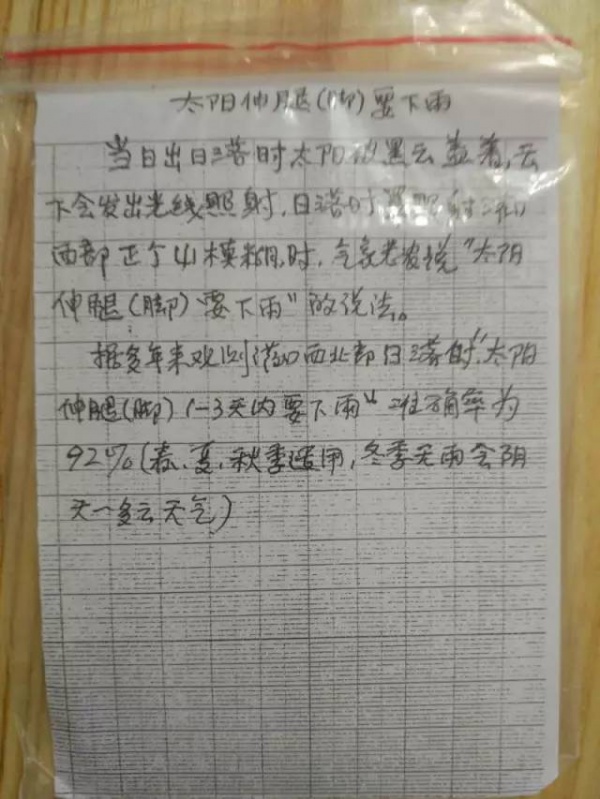 太阳伸腿(脚)要下雨
当日出日落时太阳被黑云盖着,云
下会发出光线照射,日落时
西部正个山模糊时,气象老说"太阳
伸腿(脚)要下雨"的说法。
据多年来观测 西北部日落时"太阳
伸腿(脚)1-3天内要下雨"准确率为
92%(春、夏、秋季适用,冬季无雨会阴
天一多云天气)